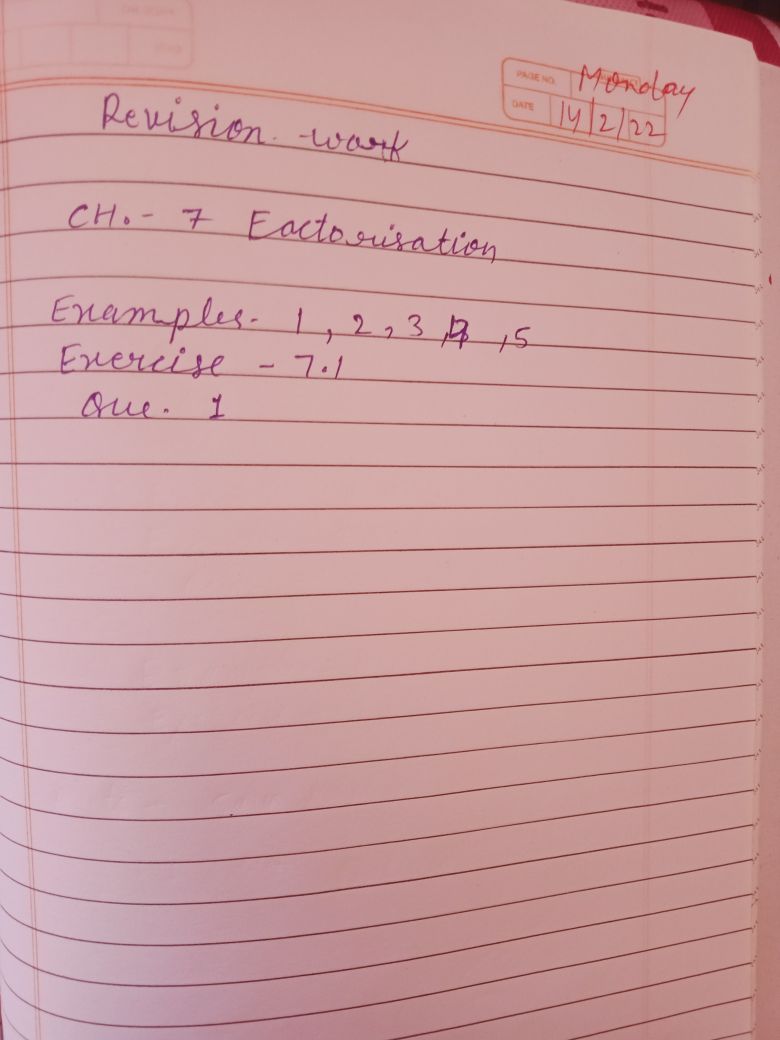 PAGE NO.
Monday
DATE
14/2/22
Revision work
CH. - 7 Factorisation
Examples - 1, 2, 3, 4, 5
Exercise - 7.1
Que. 1